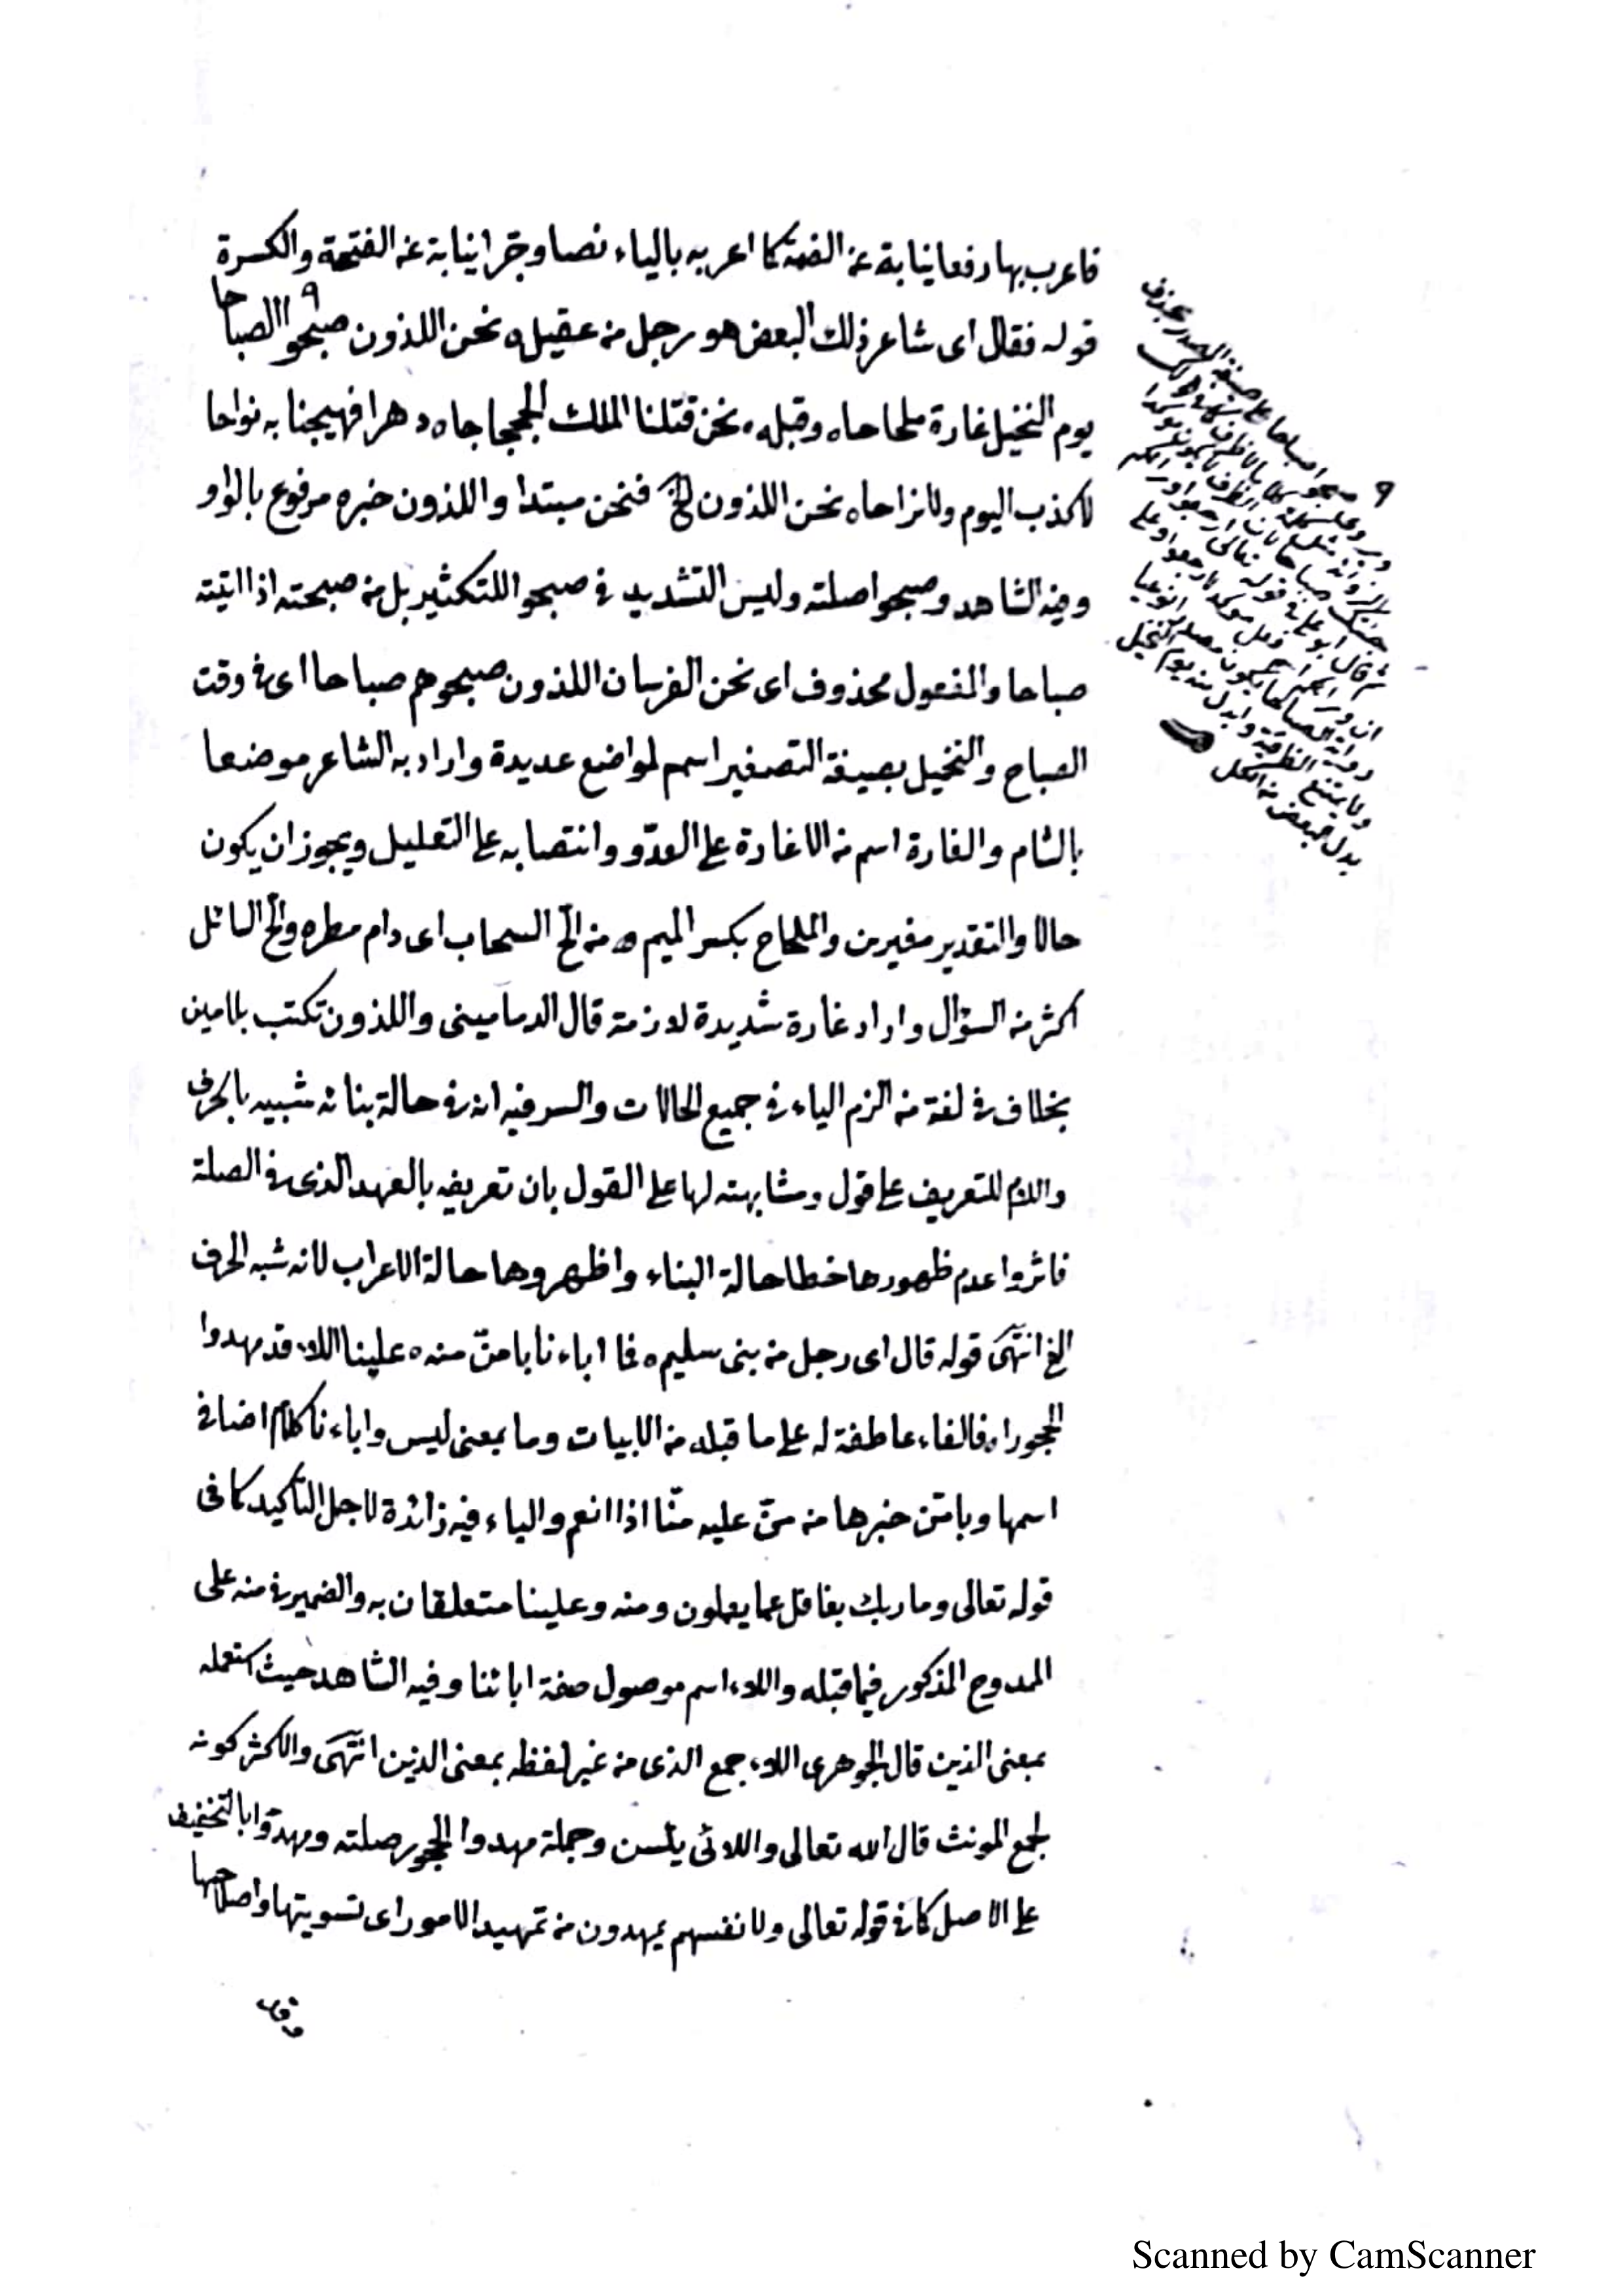 فاعرب بها رفعا نيابة عن الضمة كما اعربه بالياء نصبا وجرا نيابة عن الفتحة والكسرة
قوله فقال اى شاعر ذلك البعض هو رجل من عقيل ه نحن اللذون صبحوا الصباحا
يوم النخيل غارة ملحاحا ه وقبله ه نحن قتلنا الملك الجحجاجا ه دهرا فهيجنا به نواحا
لا كذب اليوم ولا مزاحا ه نحن اللذون الخ فنحن مبتدا واللذون خبره مرفوع بالواو
وفيه الشاهد وصبحوا صلته وليس التشديد فى صبحوا للتكثير بل من صبحته اذا اتيته
صباحا والمفعول محذوف اى نحن الفرسان اللذون صبحوهم صباحا اى فى وقت
الصباح والنخيل بصيغة التصغير اسم لمواضع عديدة واراد به الشاعر موضعا
بالشام والغارة اسم من الاغارة على العدو وانتصابه على التعليل ويجوز ان يكون
حالا والتقدير مغيرين والملحاح بكسر الميم ه من الح السحاب اى دام مطره والح السائل
اكثر من السؤال واراد غارة شديدة لازمة قال الدمامينى واللذون تكتب بلامين
بخلاف فى لغة من الزم الياء فى جميع الحالات والسر فيه انه فى حالة بنائه شبيه بالحرف
واللام للتعريف على قول ومشابهته لها على القول بان تعريفه بالعهد الذى فى الصلة
فاثروا عدم ظهورها خطا حالة البناء واظهروها حالة الاعراب لانه شبه الحرف
الخ انتهى قوله قال اى رجل من بنى سليم ه فما اباءنا بامن منه ه علينا اللاء قد مهدوا
الحجورا ه فالفاء عاطفة له على ما قبله من الابيات وما بمعنى ليس واباءنا كلام اضافى
اسمها وبامن خبرها من من عليه منا اذا انعم والباء فيه زائدة لاجل التاكيد كما فى
قوله تعالى وما ربك بغافل عما يعملون ومنه وعلينا متعلقان به والضمير فى منه على
الممدوح المذكور فيما قبله واللاء اسم موصول صفة ابائنا وفيه الشاهد حيث استعمله
بمعنى الذين قال الجوهرى اللاء جمع الذى من غير لفظه بمعنى الذين انتهى والاكثر كونه
لجمع المونث قال الله تعالى واللائى يئسن وجملة مهدوا الحجور صلته ومهدوا بالتخفيف
على الاصل كما فى قوله تعالى ولانفسهم يمهدون من تمهيد الامور اى تسويتها واصلاحها
ولا يمتنع الظرفية وابدل منه يوم النخيل
بدل البعض من الكل
Scanned by CamScanner